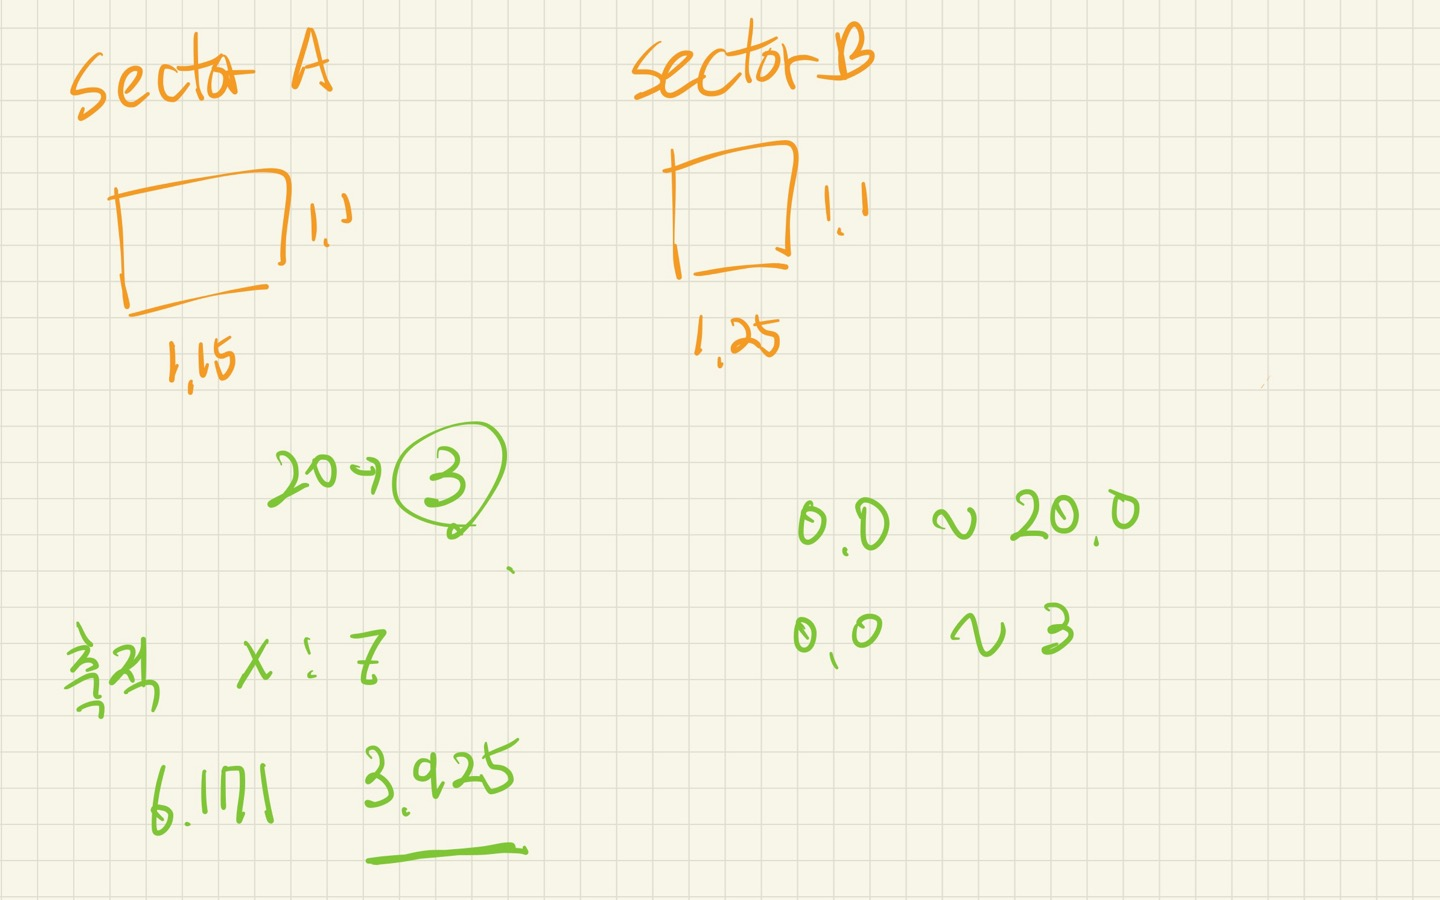 sector A
sector B
1.1
1.1
1.15
1.25
20→3
0.0 ~ 20.0
0.0 ~ 3
축적 x : 7
6.171 3.925